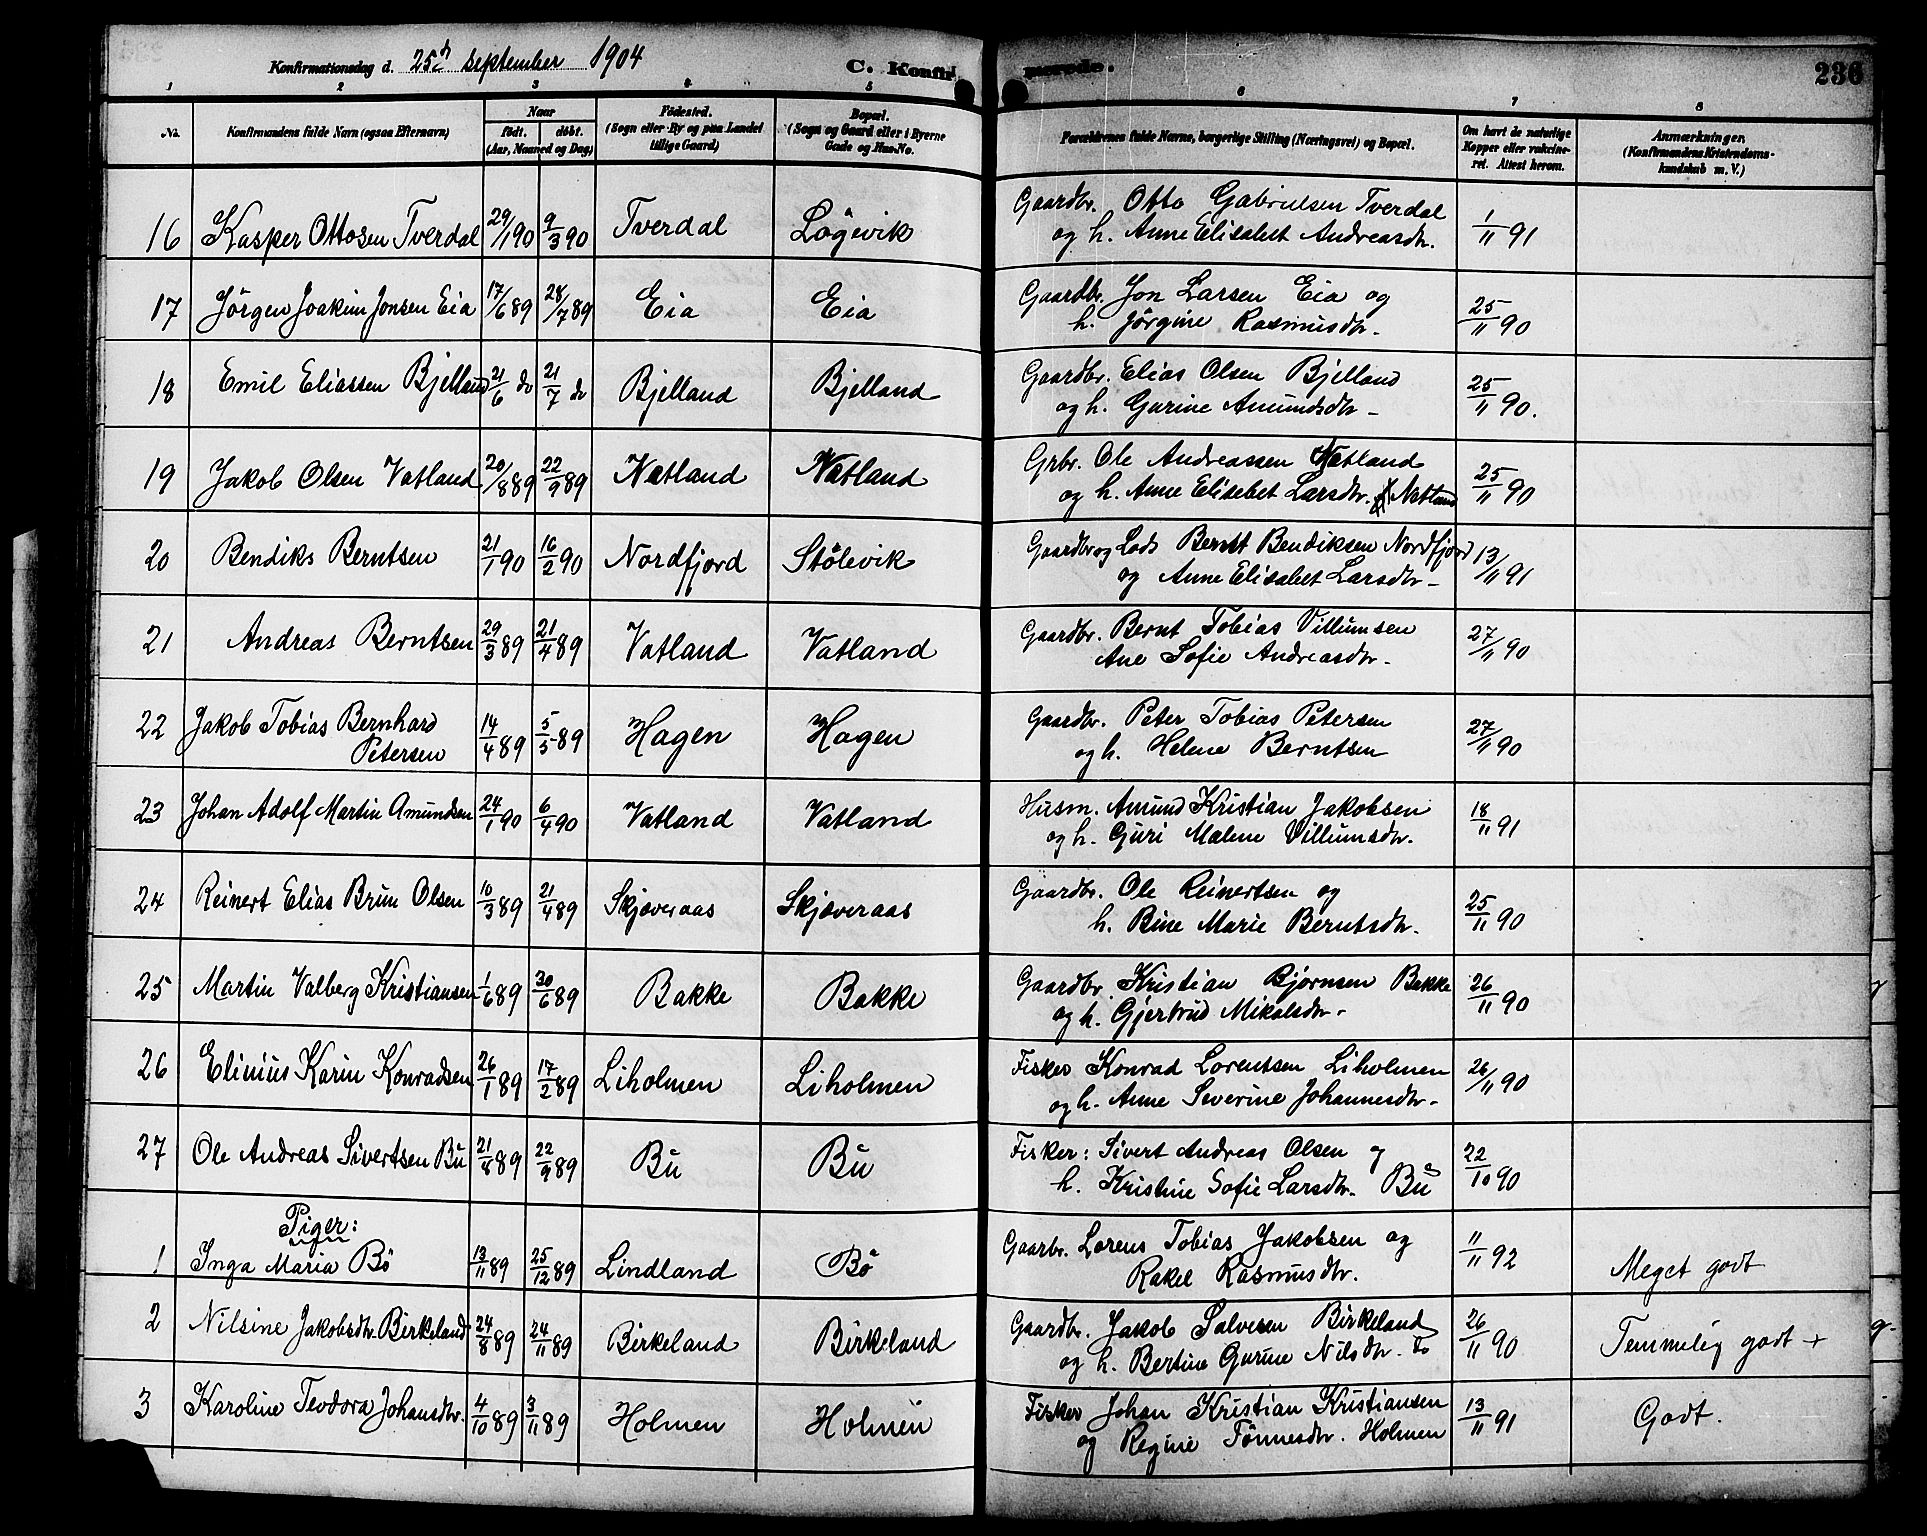 Konfirmationsdag d. 25d september 1904
C. Konfirmerede.
236
1 2 3 4 5 6 7 8
No.
Konfirmandens fulde Navn (ogsaa Efternavn)
Naar
födt. döbt.
(Aar, Maaned og Dag)
Födested.
(Sogn eller By og paa Landet
tillige Gaard)
Bopæl.
(Sogn og Gaard eller i Byerne
Gade og Hus-No.
Forældrenes fulde Navne, borgerlige Stilling (Næringsvei) og Bopæl.
Om havt de naturlige
Kopper eller vakcine-
ret. Attest herom.
Anmærkninger,
(Konfirmandens Kristendoms-
kundskab m. V.)
16 Kasper Ottosen Tverdal 29/1 90 9/3 90 Tverdal Lögevik Gaardbr. Otto Gabrielsen Tverdal 1/11 91
og h. Anne Elisabet Andreasdtr.
17 Jörgen Joakim Jonsen Eia 17/6 89 28/7 89 Eia Eia Gaardbr. Jon Larsen Eia og 25/11 90
h. Jörgine Rasmusdtr.
18 Emil Eliassen Bjelland 21/6 do 21/7 do Bjelland Bjelland Gaardbr. Elias Olsen Bjelland 25/11 90.
og h. Gurine Amundsdtr
19 Jakob Olsen Vatland 20/8 89 22/9 89 Nætland Nætland Grbr. Ole Andreassen Nætland 25/11 90
og h. Anne Elisebet Larsdtr. Nætland
20 Bendiks Berntsen 21/1 90 16/2 90 Nordfjord Stölevik Gaardbr og Lods Bernt Bendiksen Nordfjord 13/11 91
og Anne Elisabet Larsdtr
21 Andreas Berntsen 29/3 89 21/4 89 Vatland Vatland Gaardbr. Bernt Tobias Villumsen 27/11 90
Ane Sofie Andreasdtr.
22 Jakob Tobias Bernhard 14/4 89 5/5 89 Hagen Hagen Gaardbr. Peter Tobias Petersen 27/11 90
Petersen og h. Helene Berntsen
23 Johan Adolf Martin Amundsen 24/1 90 6/4 90 Vatland Vatland Husm. Amund Kristian Jakobsen 18/11 91
og h. Guri Malene Villumsdtr.
24 Reinert Elias Brun Olsen 10/3 89 21/4 89 Skjæveraas Skjæveraas Gaardbr. Ole Reinertsen og 25/11 90
h. Bine Marie Berntsdtr.
25 Martin Valberg Kristiansen 1/6 89 30/6 89 Bakke Bakke Gaardbr. Kristian Bjørnsen Bakke 26/11 90
og h. Gjertrud Mikalsdtr.
26 Elinius Karin Konradsen 26/1 89 17/2 89 Liholmen Liholmen Fisker Konrad Lorentsen Liholmen 26/11 90
og h. Anne Severine Johannesdtr.
27 Ole Andreas Sivertsen Bu 21/8 89 22/9 89 Bu Bu Fisker: Sivert Andreas Olsen og 22/10 90
h. Kristine Sofie Larsdtr. Bu
Piger:
1 Inga Maria Bö 13/11 89 25/12 89 Lindland Bö Gaarbr. Lorens Tobias Jakobsen og 11/11 92 Meget godt
Rakel Rasmusdtr.
2 Nilsine Jakobsdtr. Birkeland 24/8 89 24/11 89 Birkeland Birkeland Gaardbr. Jakob Salvesen Birkeland 26/11 90 Temmelig godt +
og h. Bertine Gurine Nilsdtr. do
3 Karoline Teodora Johansdtr. 4/10 89 3/11 89 Holmen Holmen Fisker Johan Kristian Kristiansen 13/11 91 Godt.
og Regine Tönnesdtr. Holmen